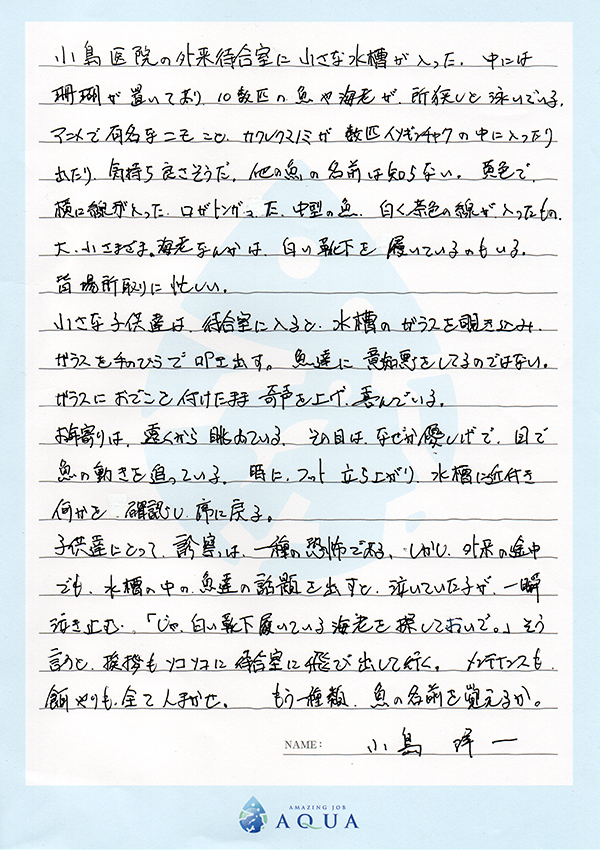 小島医院の外来待合室に小さな水槽が入った。中には
珊瑚が置いており、10数匹の魚や海老が、所狭しと泳いでいる。
アニメで有名なニモこと、カクレクマノミが数匹イソギンチャクの中に入ったり
出たり、気持ち良さそうだ。他の魚の名前は知らない。黄色で、
横に線が入った、ロがトンガッた、中型の魚、白く茶色の線が入ったもの、
大、小さまざま。海老なんかは、白い靴下を履いているのもいる。
皆場所取りに忙しい。
小さな子供達は、待合室に入ると、水槽のガラスを覗き込み、
ガラスを手のひらで叩き出す。魚達に意地悪をしてるのではない。
ガラスにおでこを付けたまま奇声を上げ、喜んでいる。
お年寄りは、遠くから眺めている。その目は、なぜか優しげで、目で
魚の動きを追っている。時に、フット立ち上がり、水槽に近付き
何かを、確認し、席に戻る。
子供達にとって、診察は、一種の恐怖である。しかし、外来の途中
でも、水槽の中の魚達の話題を出すと、泣いていた子が、一瞬
泣き止む。「じゃ、白い靴下履いている海老を探しておいで。」そう
言うと、挨拶もソコソコに待合室に飛び出して行く。メンテナンスも、
餌やりも、全て人まかせ。もう一種類、魚の名前を覚えるか。
NAME: 小島 洋一
AMAZING JOB
AQUA